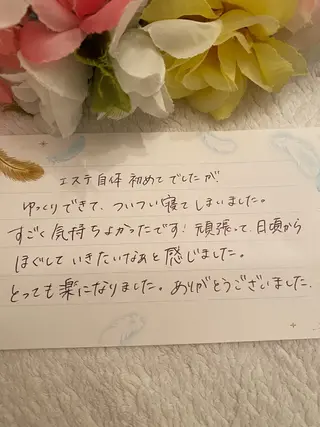 エステ自体 初めてでしたが、
ゆっくりできて、ついつい寝てしまいました。
すごく気持ちよかったです! 頑張って、日頃から
ほぐしていきたいなぁと感じました。
とっても楽になりました。ありがとうございました。